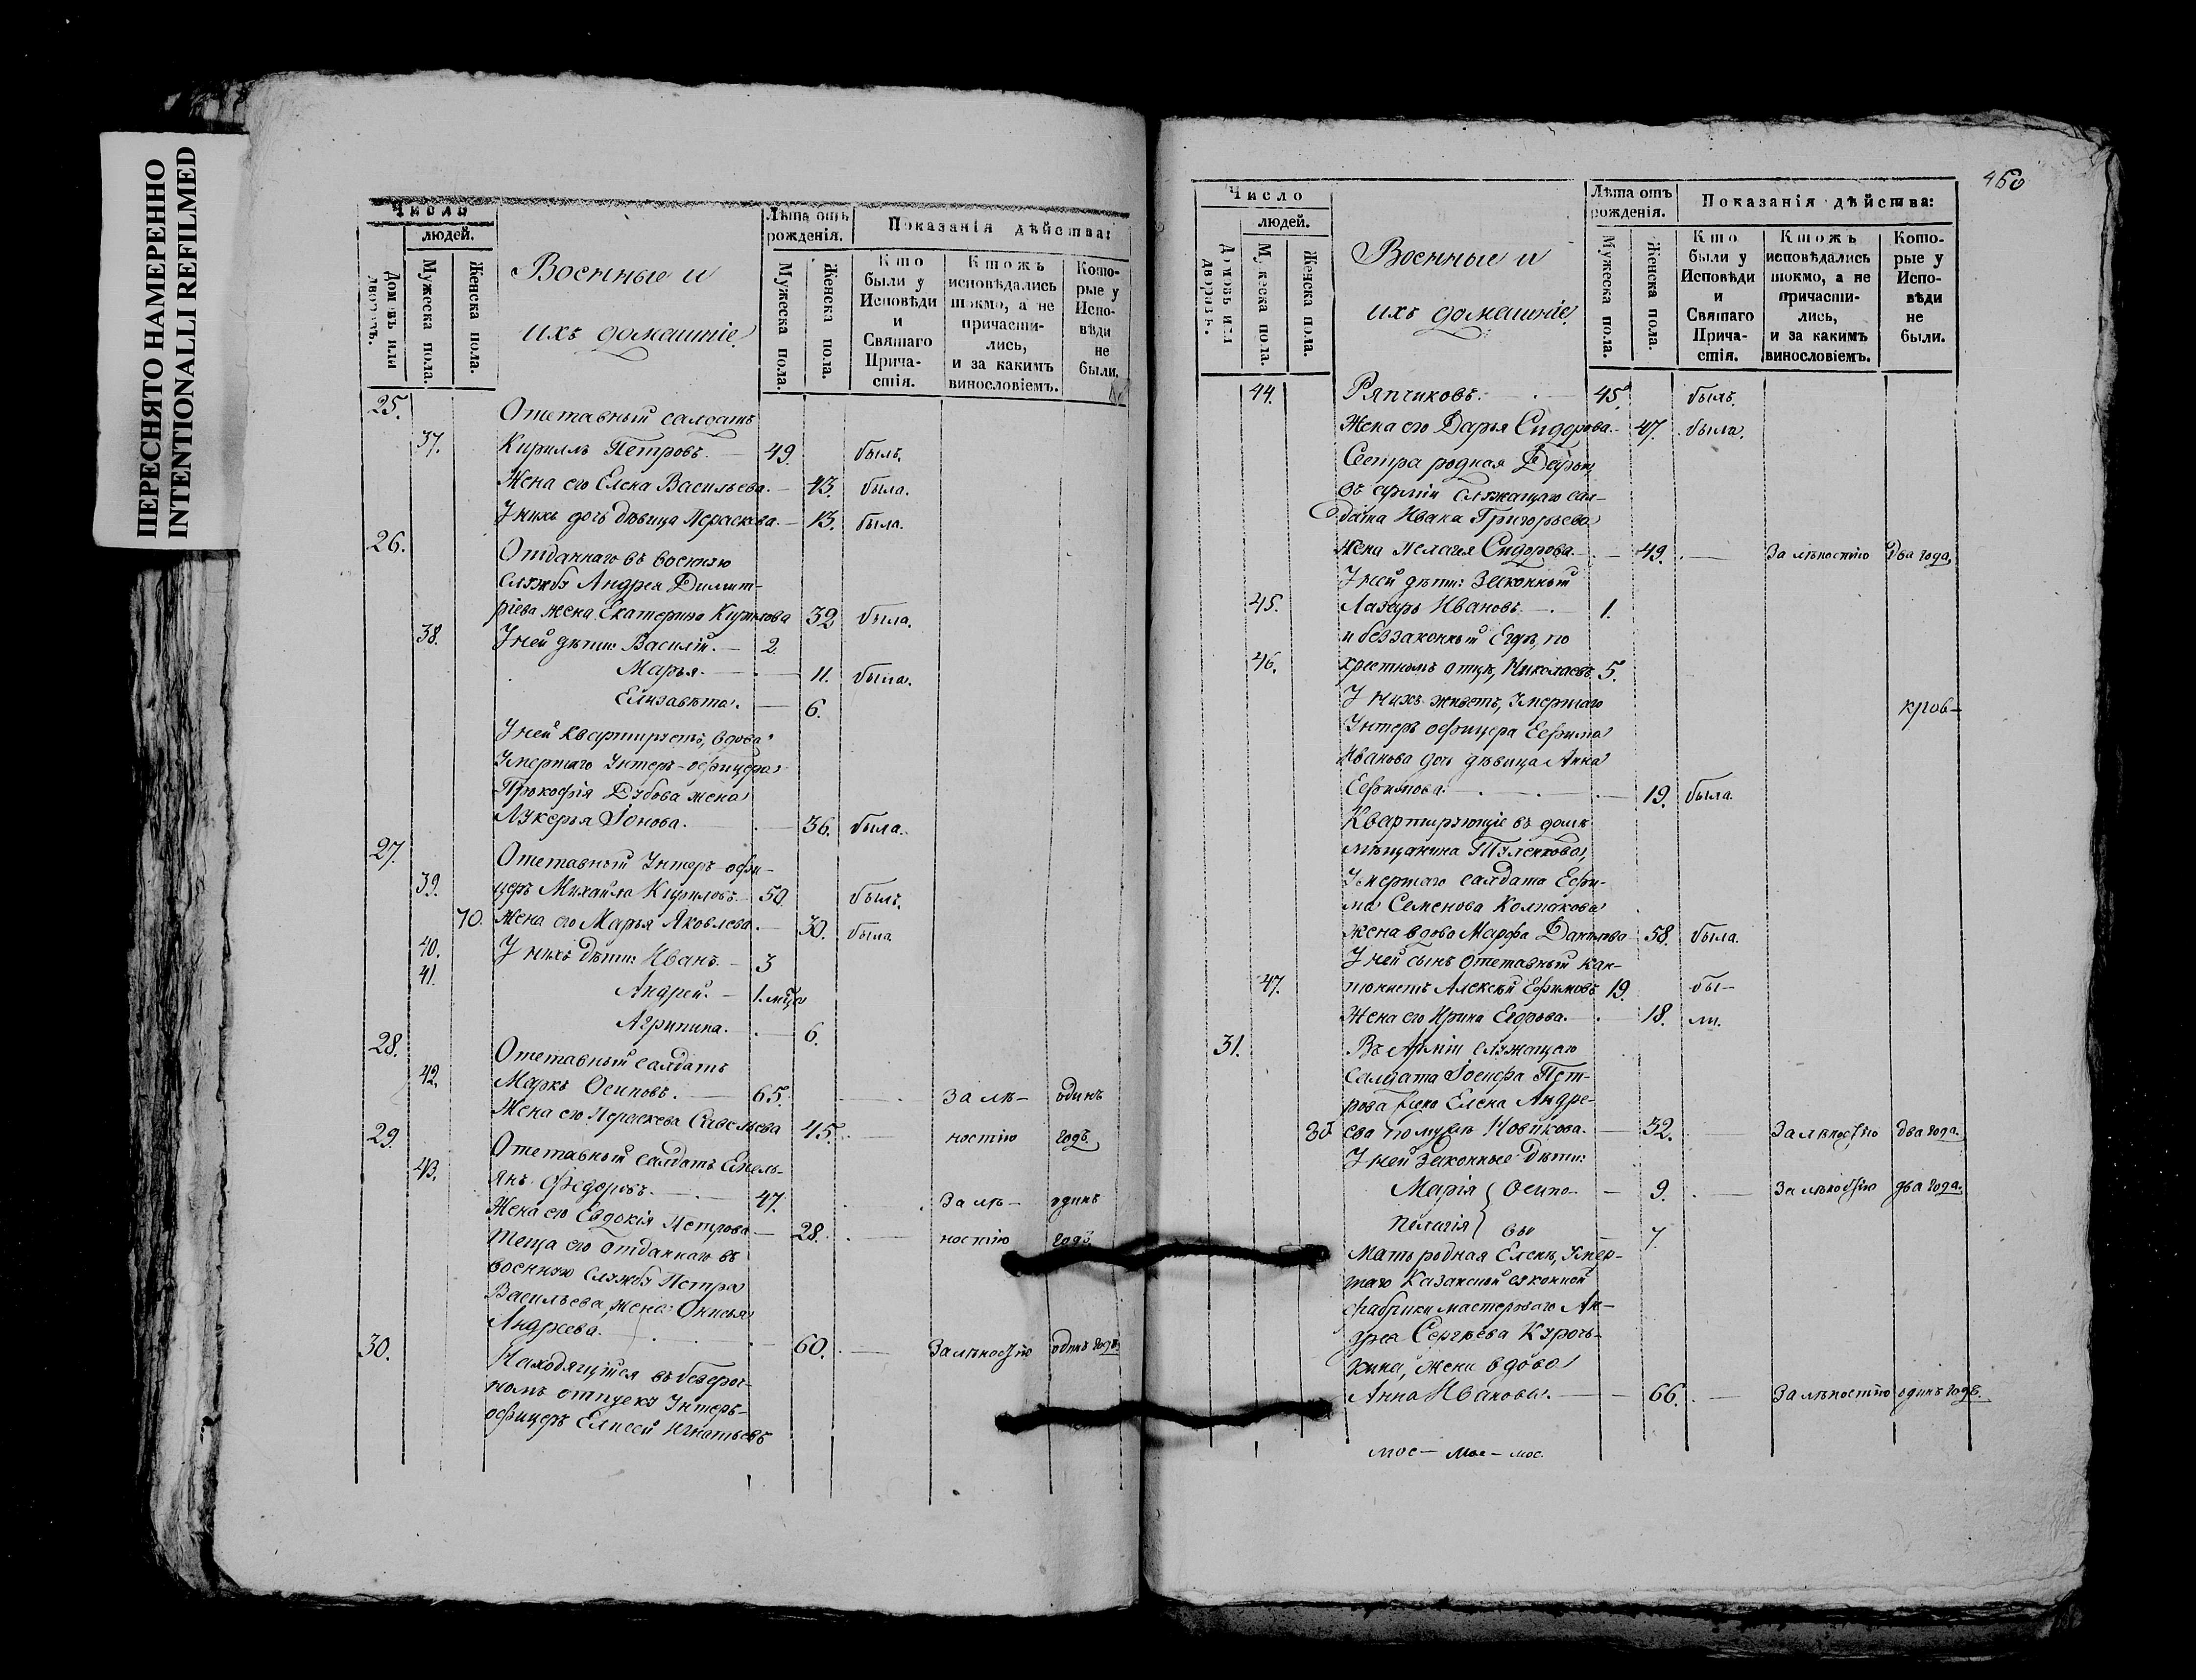 ПЕРЕСНЯТО НАМЕРЕННО
INTENTIONALLI REFILMED
Число
людей.
Домовъ или дворовъ.
Мужеска пола.
Женска пола.
Военные и
ихъ домашніе
Лѣта отъ рожденія.
Мужеска пола.
Женска пола.
Показанія дѣйства:
Кто были у Исповѣди и Святаго Причастія.
Ктожъ исповѣдались токмо, а не причастились, и за какимъ винословіемъ.
Которые у Исповѣди не были.
25. Отставный салдатъ
37. Кириллъ Петровъ. 49. былъ.
Жена его Елена Васильева. 43. была.
У нихъ дочь дѣвица Параскева. 13. была.
26. Отданнаго въ военную
службу Андрея Димит-
ріева жена Екатерина Кирилова 32 была.
38. У ней дѣти: Василій. 2.
Марья. 11. была.
Елизавета. 6.
У ней квартируетъ, вдова
Умершаго Унтеръ-офицера
Прокофія Дубова жена
Лукерья Іонова. 36. была.
27. Отставный Унтеръ-офи-
39. церъ Михайла Кириловъ. 50. былъ.
70. Жена его Марья Яковлева. 30. была
40. У нихъ дѣти: Иванъ. 3
41. Андрей. 1. мѣса
Агрипина. 6.
28. Отставный салдатъ
42. Маркъ Осиповъ. 65. За лѣ- одинъ
Жена его Параскева Савельева 45. ностію годъ.
29. Отставный салдатъ Емель-
43. янъ Федоровъ. 47. За лѣ- одинъ
Жена его Евдокія Петрова 28. ностію годъ.
Теща его отданнаго въ
военную службу Петра
Васильева, жена Онисья
Андреева. 60. За лѣностію одинъ годъ.
30. Находящійся въ безсроч-
номъ отпуску Унтеръ-
офицеръ Елисей Игнатьевъ
460
Число
людей.
Домовъ или дворовъ.
Мужеска пола.
Женска пола.
Военные и
ихъ домашніе
Лѣта отъ рожденія.
Мужеска пола.
Женска пола.
Показанія дѣйства:
Кто были у Исповѣди и Святаго Причастія.
Ктожъ исповѣдались токмо, а не причастились, и за какимъ винословіемъ.
Которые у Исповѣди не были.
44. Ряпчиковъ. 45. былъ.
Жена его Дарья Сидорова. 47. была.
Сестра родная Дарьи,
въ арміи служащаго сал-
дата Ивана Григорьева
жена Пелагія Сидорова. 49. За лѣностію Два года,
У ней дѣти: Законный
45. Лазарь Ивановъ. 1.
и беззаконный Егоръ, по
46. крестномъ отцѣ, Николаевъ 5.
У нихъ живетъ, Умершаго кров-
Унтеръ офицера Ефима
Иванова дочь дѣвица Анна
Ефимова. 19. была.
Квартирующіе въ домѣ
мѣщанина Туленкова,
Умершаго салдата Ефи-
ма Семенова Колпакова
жена вдова Марфа Данилова 58. была.
У ней сынъ отставный кан-
47. тонистъ Алексѣй Ефимовъ 19. бы-
Жена его Ирина Егорова. 18. ли.
31. Въ Арміи служащаго
Салдата Іосифа Пет-
рова жена Елена Андре-
ева по мужѣ Новикова. 32. За лѣностію два года.
У ней Законные дѣти:
Марія Осипо- 9. За лѣностію два года.
Пелагія вы 7.
Мать родная Елены, Умер-
шаго Казанской суконной
фабрики мастероваго Ан-
дрея Сергѣева Куроч-
кина, жена вдова
Анна Иванова. 66. За лѣностію одинъ годъ.
мос- мос- мос.